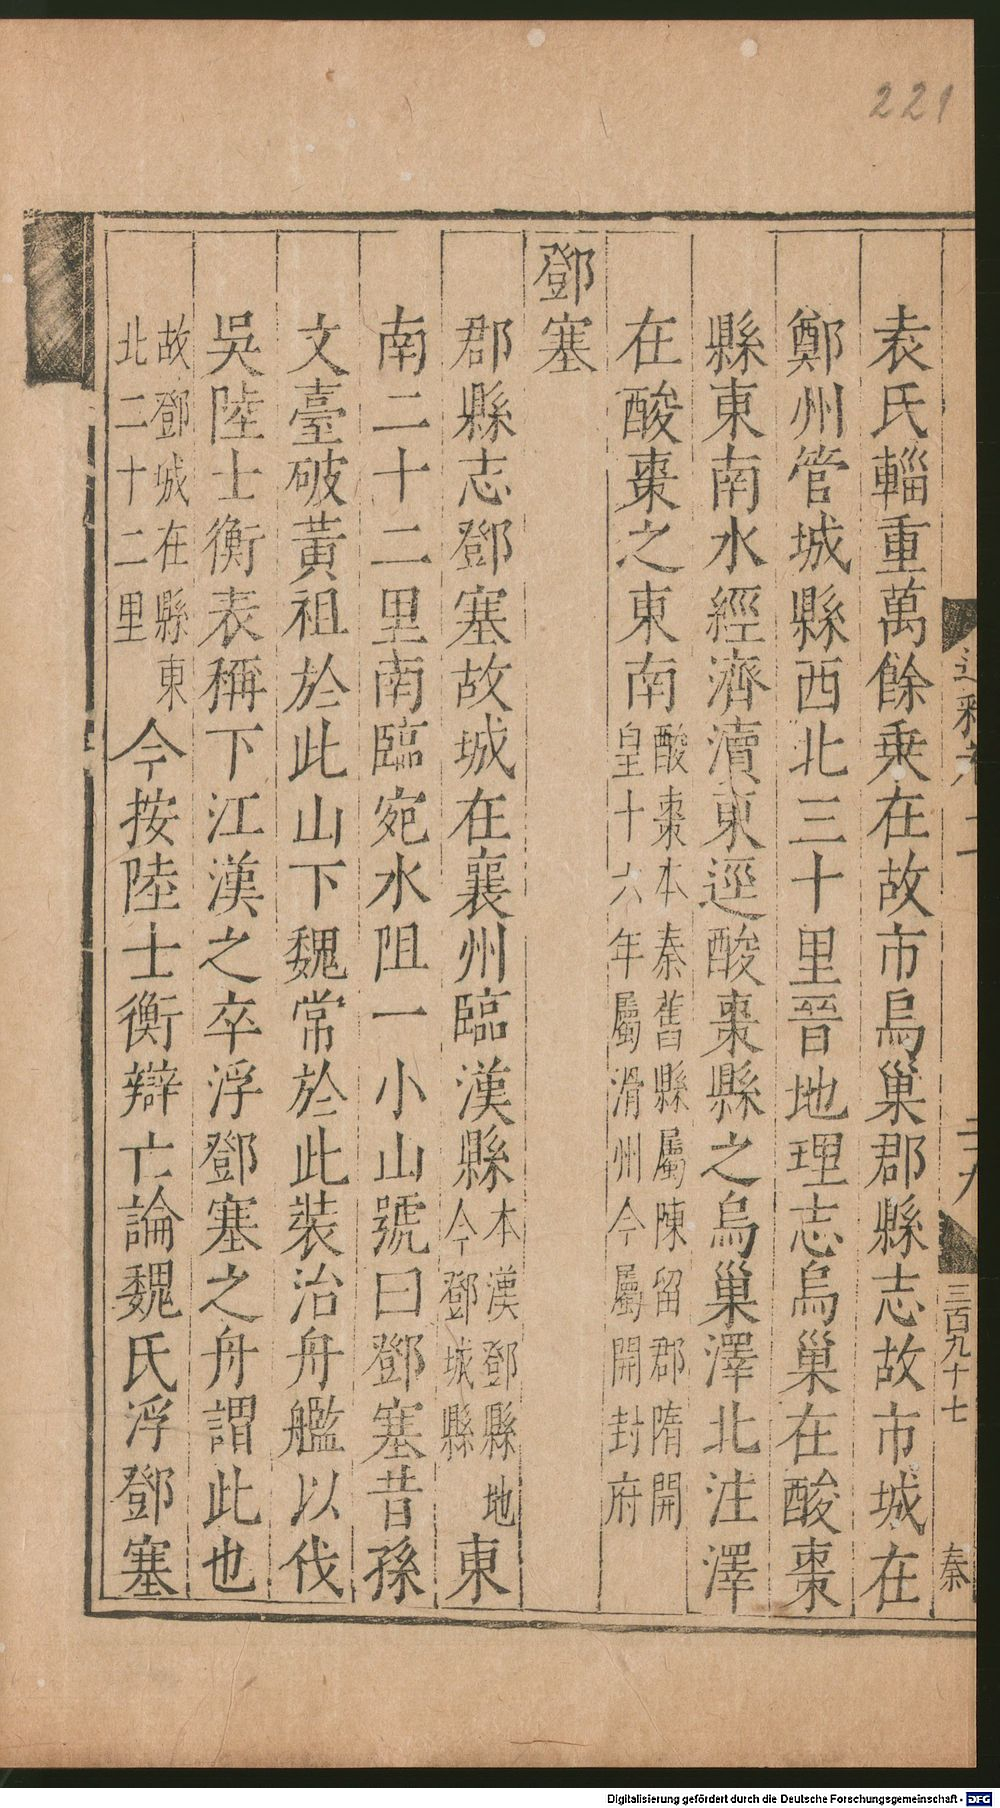 221
袁氏輜重萬餘乗在故市烏巢郡縣志故市城在
鄭州管城縣西北三十里晉地理志烏巢在酸棗
縣東南水經濟瀆東逕酸棗縣之烏巢澤北注澤
在酸棗之東南酸棗本秦舊縣屬陳留郡隋開
皇十六年屬滑州今屬開封府
鄧塞
郡縣志鄧塞故城在襄州臨漢縣本漢鄧縣地
今鄧城縣東
南二十二里南臨宛水阻一小山號曰鄧塞昔孫
文臺破黃祖於此山下魏常於此裝治舟艦以伐
吳陸士衡表稱下江漢之卒浮鄧塞之舟謂此也
故鄧城在縣東
北二十二里今按陸士衡辯亡論魏氏浮鄧塞
通釋卷十一
三百九十七
秦
Digitalisierung gefördert durch die Deutsche Forschungsgemeinschaft - DFG